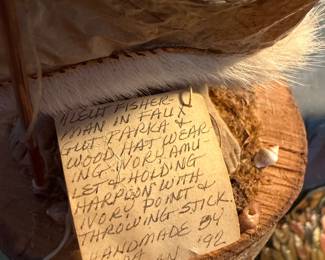 ALEUT FISHER
MAN IN FALL
GUT PARKA &
WOOD HAT, WEAR
ING IVORY AMU
LET & HOLDING
HARPOON WITH
IVORY POINT &
THROWING STICK.
HANDMADE BY
'92